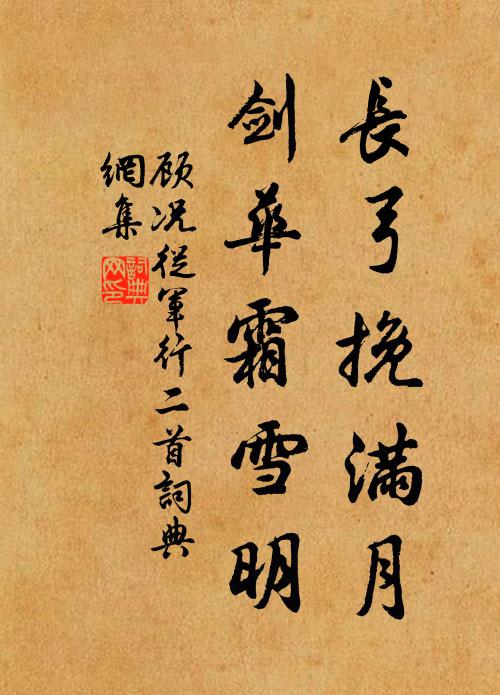 長弓挽滿月
劍華霜雪明
顾况從軍行二首詞典
網集
詞典
网印